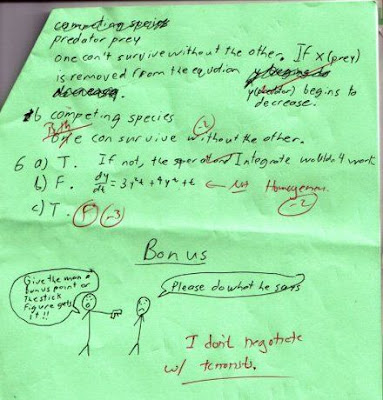 competing species
predator prey
one can't survive without the other. If x(prey)
is removed from the equation y begins to
decreasing. y(predator) begins to
decrease.
b competing species
Both
One can survive without the other. -2
6 a) T. If not, the operation Integrate wouldn't work
b) F. dy/dt = 3y²t + 4y² + t ← Not Homogenous. -2
c) T. F -3
Bonus
Give the man a
bonus point or
the stick
figure gets
it!!
Please do what he says
I don't negotiate
w/ terrorists.